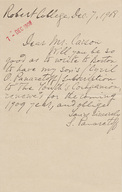 Robert College, Dec 7, 1908
Dear Mr. Carson
Will you be so
good as to write to Boston
to have my son's Cyril
O. Panaretoff subscription
to the Youth's Companion
renewed for the coming
1909 year, and oblige
Yours sincerely
S. Panaretoff